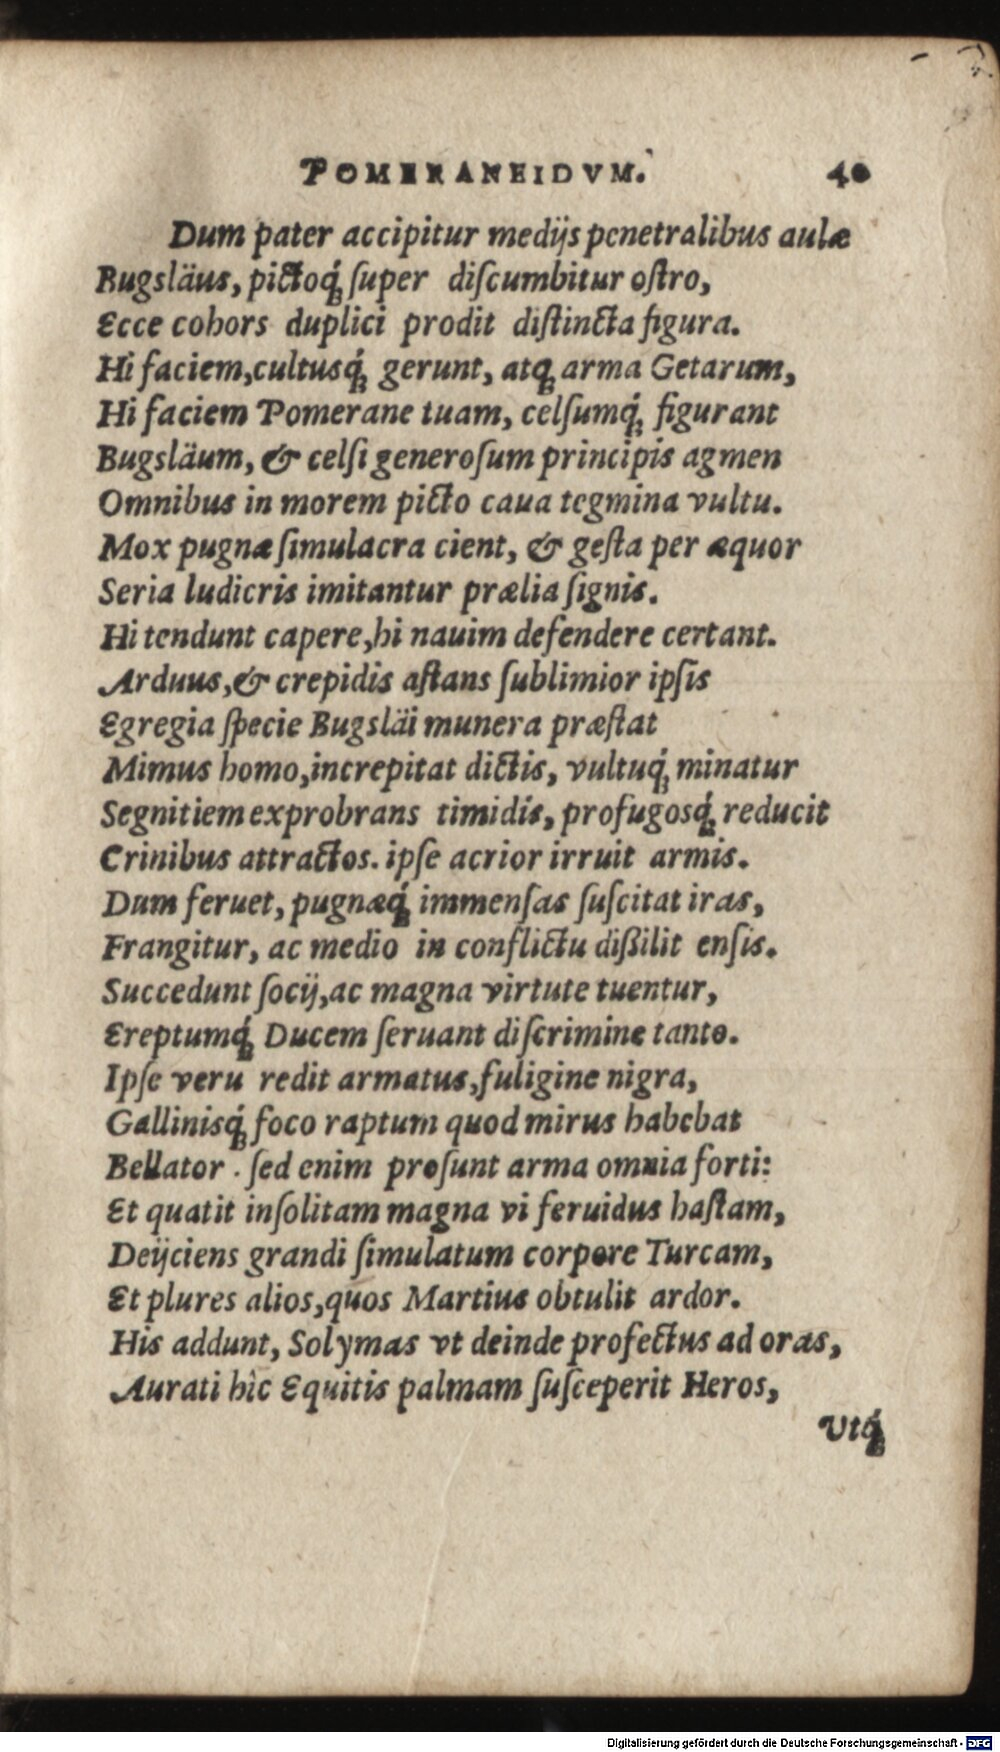 POMERANEIDVM. 40
Dum pater accipitur medijs penetralibus aulæ
Bugsläus, pictoq́; ſuper diſcumbitur oſtro,
Ecce cohors duplici prodit diſtincta figura.
Hi faciem, cultusq́; gerunt, atq; arma Getarum,
Hi faciem Pomerane tuam, celſumq́; figurant
Bugsläum, & celſi generoſum principis agmen
Omnibus in morem picto caua tegmina vultu.
Mox pugnæ ſimulacra cient, & geſta per æquor
Seria ludicris imitantur prælia ſignis.
Hi tendunt capere, hi nauim defendere certant.
Arduus, & crepidis aſtans ſublimior ipſis
Egregia ſpecie Bugsläi munera præſtat
Mimus homo, increpitat dictis, vultuq́; minatur
Segnitiem exprobrans timidis, profugosq́; reducit
Crinibus attractos. ipſe acrior irruit armis.
Dum feruet, pugnæq́; immenſas ſuſcitat iras,
Frangitur, ac medio in conflictu dißilit enſis.
Succedunt ſocij, ac magna virtute tuentur,
Ereptumq́; Ducem ſeruant diſcrimine tanto.
Ipſe veru redit armatus, fuligine nigra,
Gallinisq́; foco raptum quod mirus habebat
Bellator. ſed enim proſunt arma omnia forti:
Et quatit inſolitam magna vi feruidus haſtam,
Deijciens grandi ſimulatum corpore Turcam,
Et plures alios, quos Martius obtulit ardor.
His addunt, Solymas vt deinde profectus ad oras,
Aurati hìc Equitis palmam ſuſceperit Heros,
Vtq́;
Digitalisierung gefördert durch die Deutsche Forschungsgemeinschaft - DFG